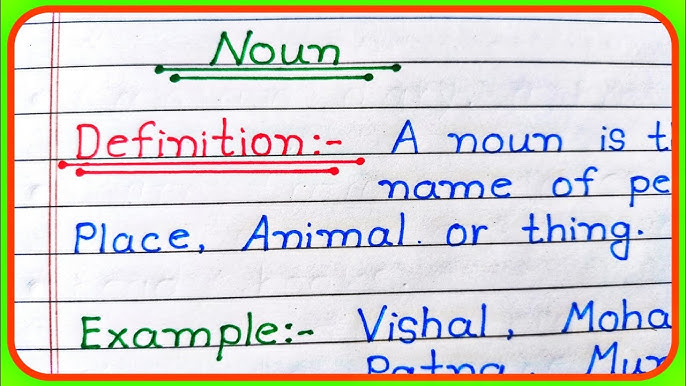 Noun
Definition:- A noun is
name of
Place, Animal. or thing.
Example:- Vishal,
Patna,